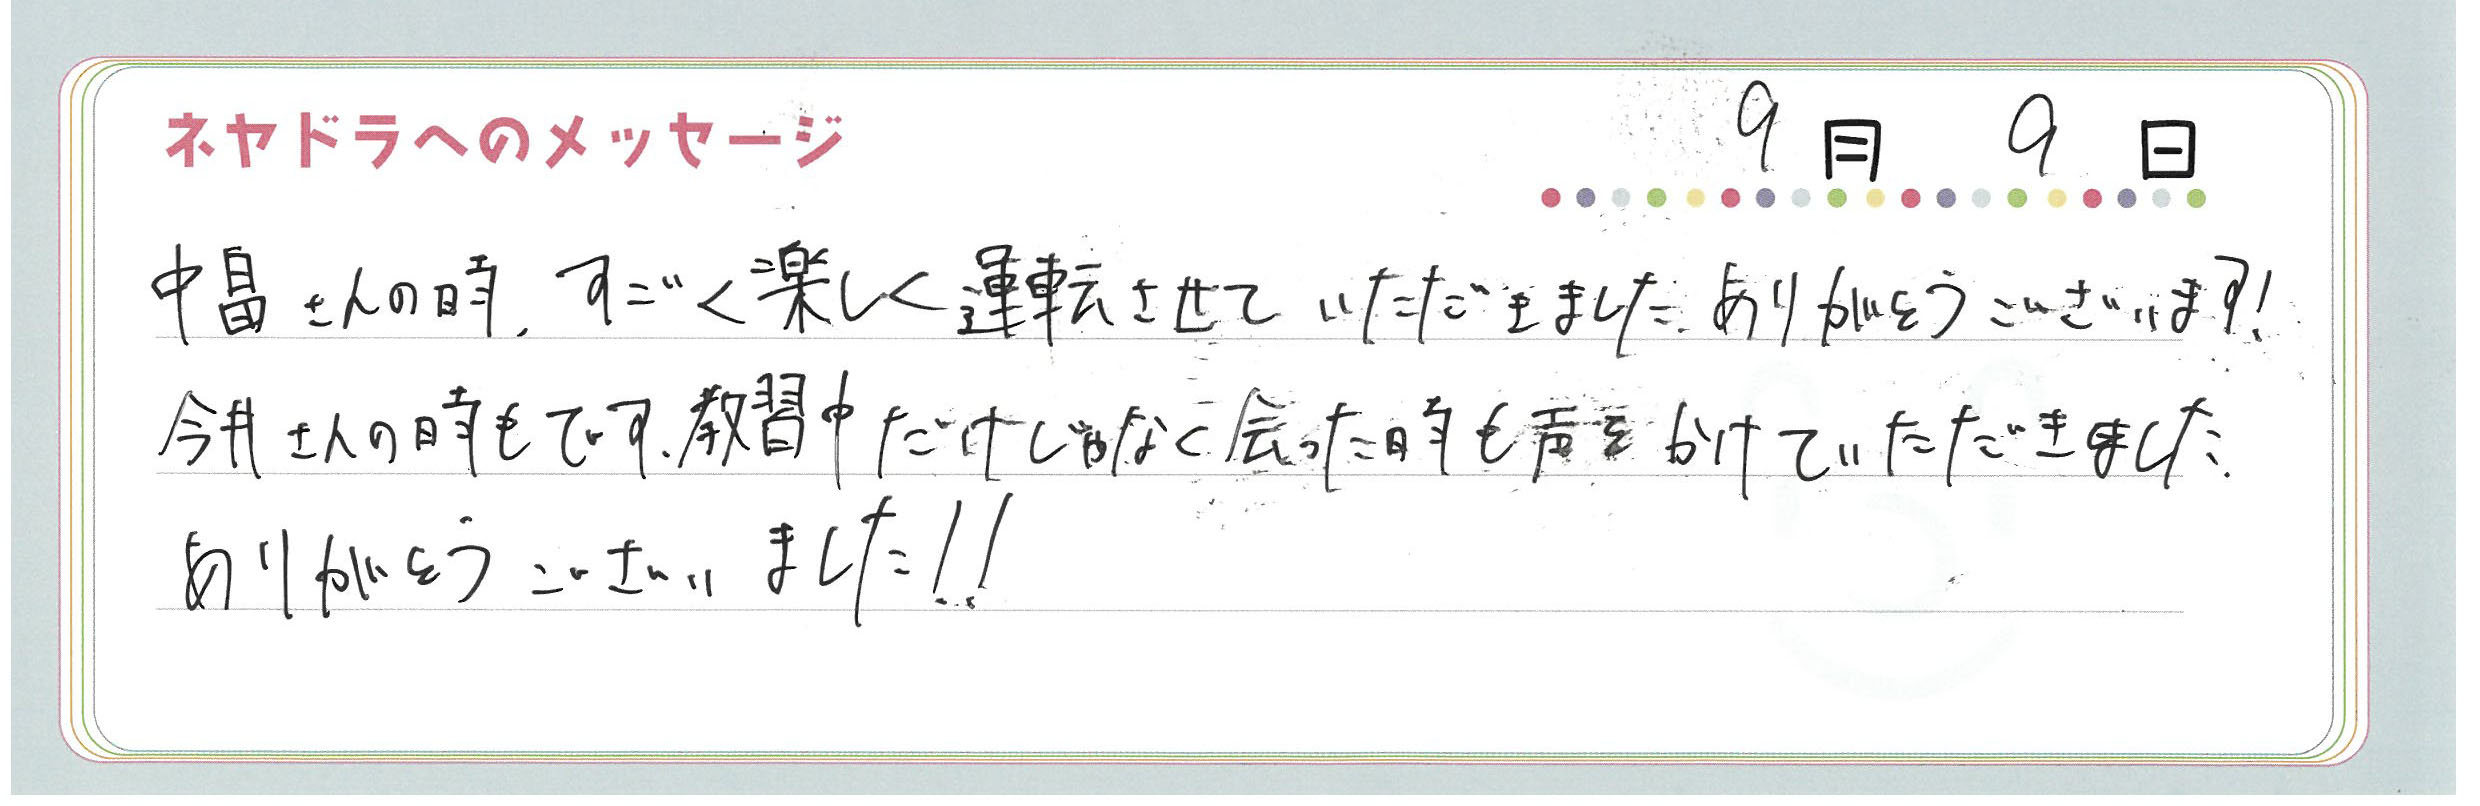 ネヤドラへのメッセージ
9月 9日
中畠さんの時、すごく楽しく運転させていただきました。ありがとうございます!
今井さんの時もです。教習中だけじゃなく会った時も声をかけていただきました。
ありがとうございました!!